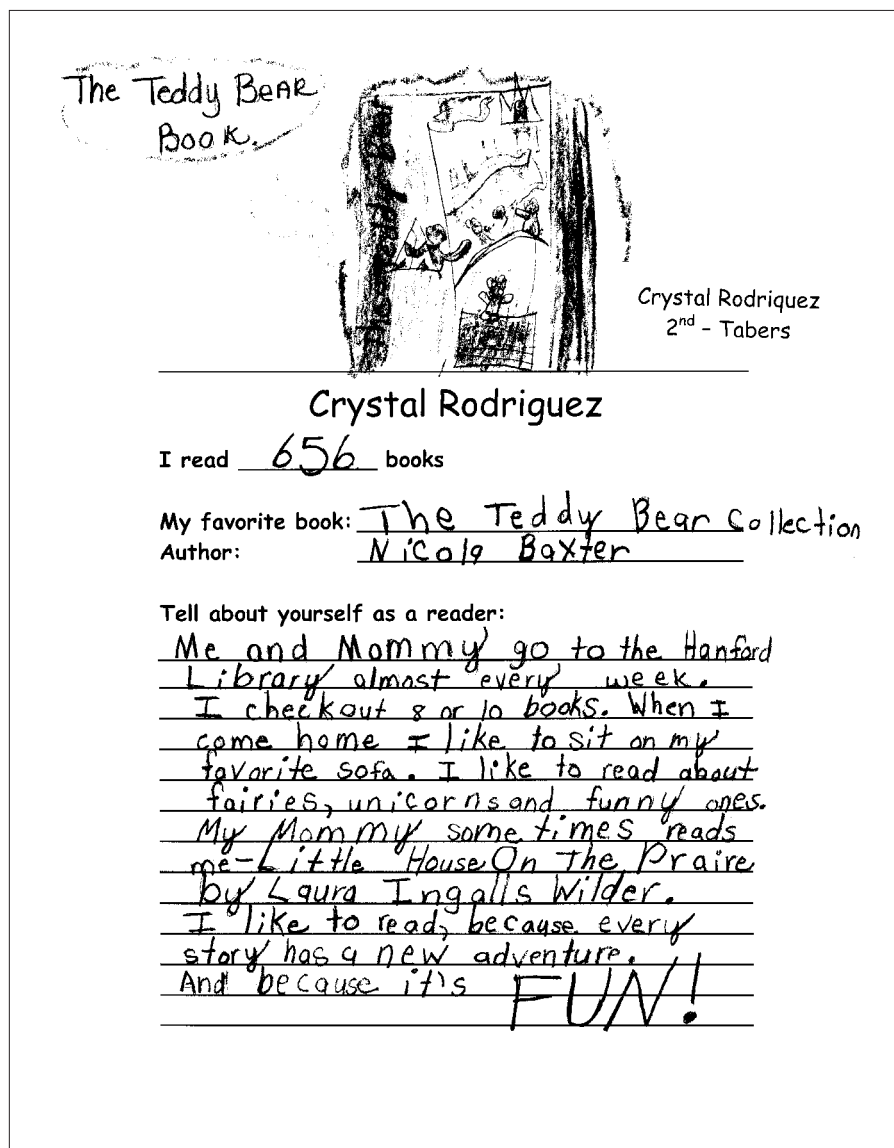 The Teddy BEAR
Book.
Crystal Rodriquez
2nd - Tabers
Crystal Rodriguez
I read 656 books
My favorite book: The Teddy Bear Collection
Author: Nicola Baxter
Tell about yourself as a reader:
Me and Mommy go to the Hanford
Library almost every week.
I checkout 8 or 10 books. When I
come home I like to sit on my
favorite sofa. I like to read about
fairies, unicorns and funny ones.
My Mommy some times reads
me-Little House On The Praire
by Laura Ingalls Wilder.
I like to read, because every
story has a new adventure.
And because it's FUN!